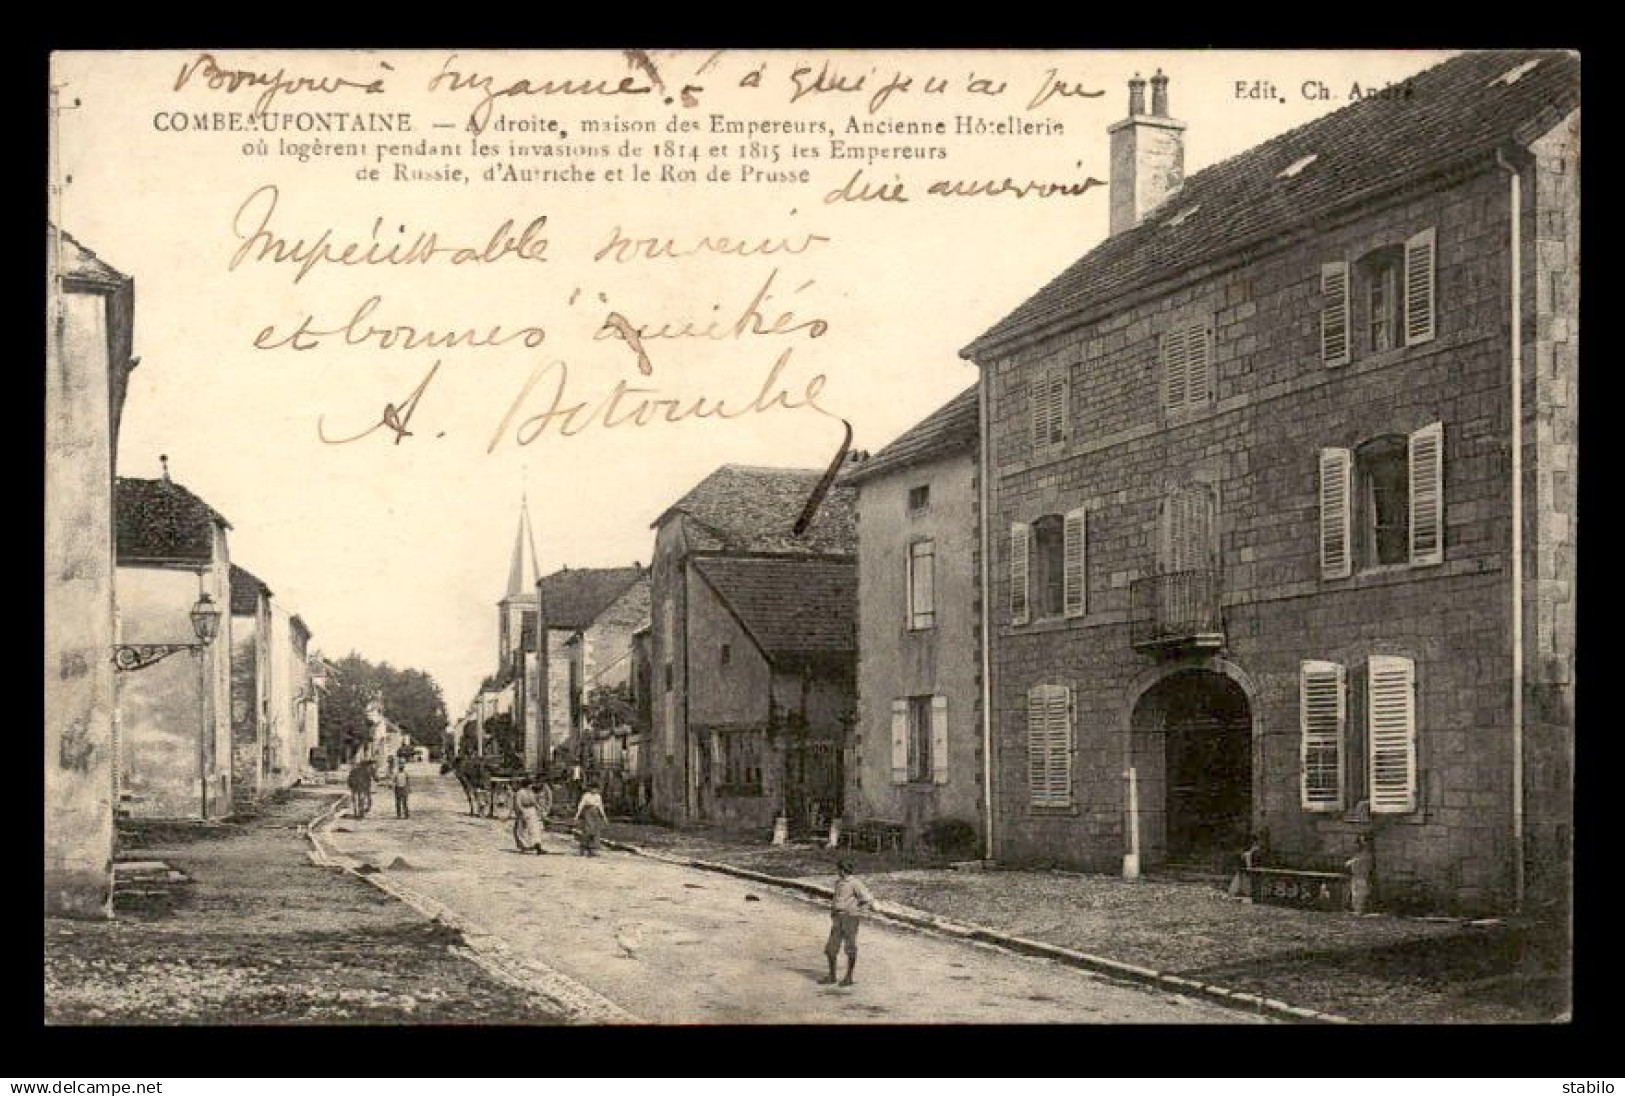 Bonjour à Suzanne ! à qui je n'ai pu
Edit. Ch. André
COMBEAUFONTAINE — A droite, maison des Empereurs, Ancienne Hôtellerie
où logèrent pendant les invasions de 1814 et 1815 les Empereurs
de Russie, d'Autriche et le Roi de Prusse
dire au revoir
Impérissable souvenir
et bonnes amitiés
A.
www.delcampe.net
stabilo